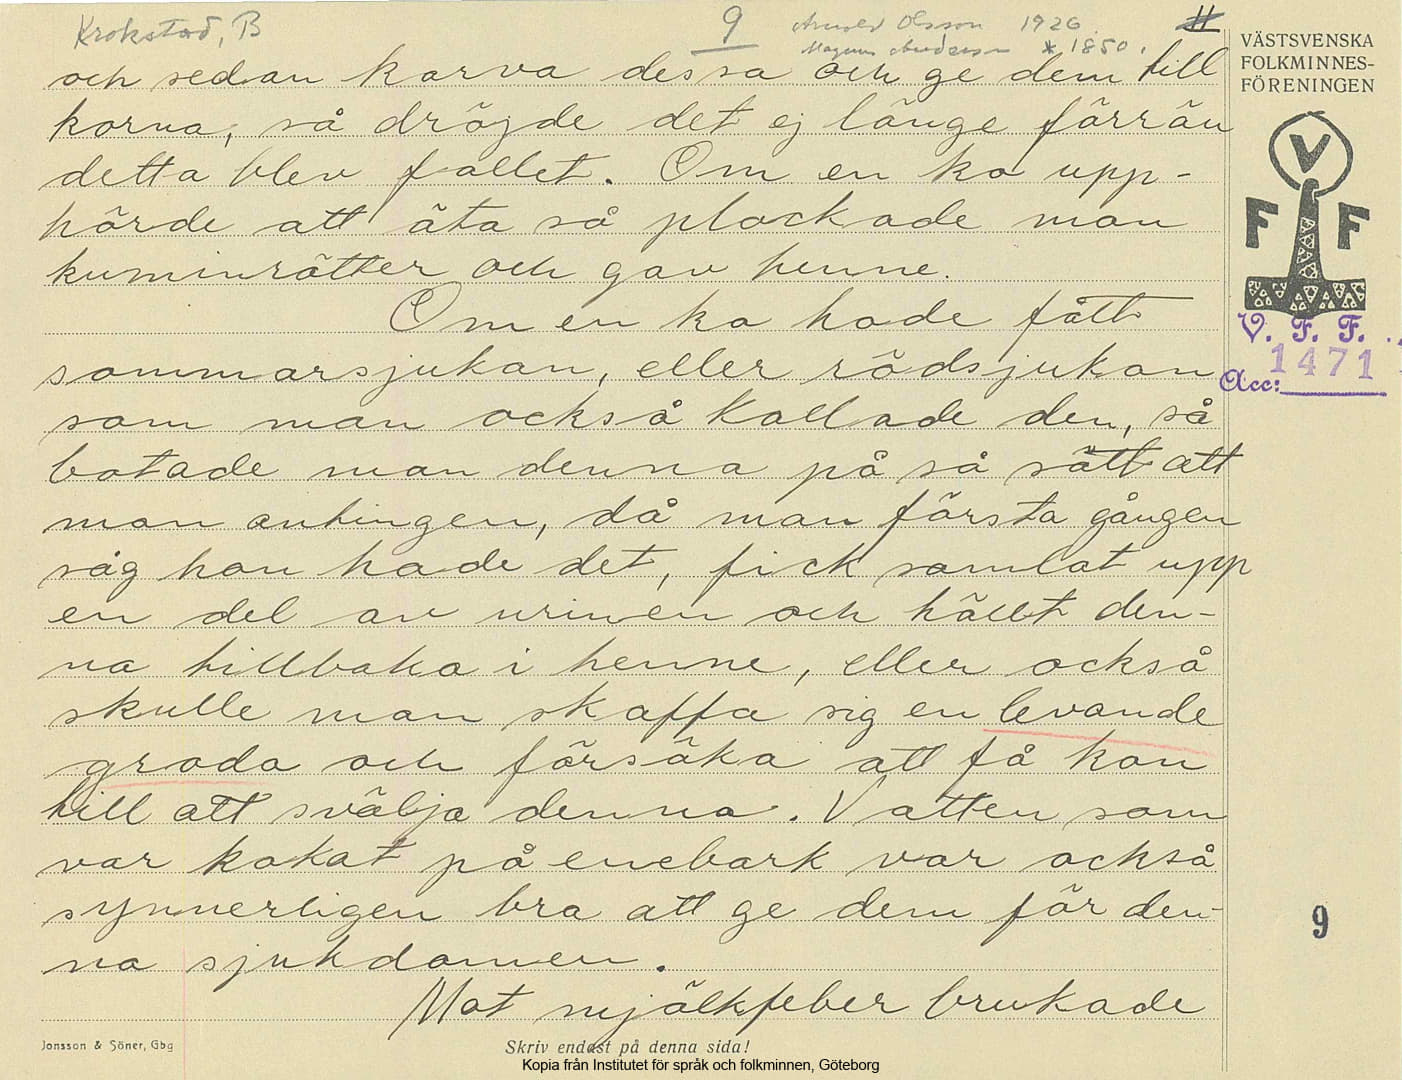 Krokstad, B
9
Arnold Olsson 1926.
Magnus Andersson * 1850.
11
VÄSTSVENSKA
FOLKMINNES-
FÖRENINGEN
V
F F
V. F. F.
Acc: 1471
och sedan karva dessa och ge dem till
korna, så dröjde det ej länge förrän
detta blev fallet. Om en ko upp-
hörde att äta så plockade man
kuminrötter och gav henne.
Om en ko hade fått
sommarsjukan, eller rödsjukan
som man också kallade den, så
botade man denna på så sätt att
man antingen, då man första gången
såg hon hade det, fick samlat upp
en del av urinen och hällt den-
na tillbaka i henne, eller också
skulle man skaffa sig en levande
groda och försöka att få kon
till att svälja denna. Vatten som
var kokat på enebark var också
synnerligen bra att ge dem för den-
na sjukdomen.
Mot mjölkfeber brukade
9
Jonsson & Söner, Gbg
Skriv endast på denna sida!
Kopia från Institutet för språk och folkminnen, Göteborg